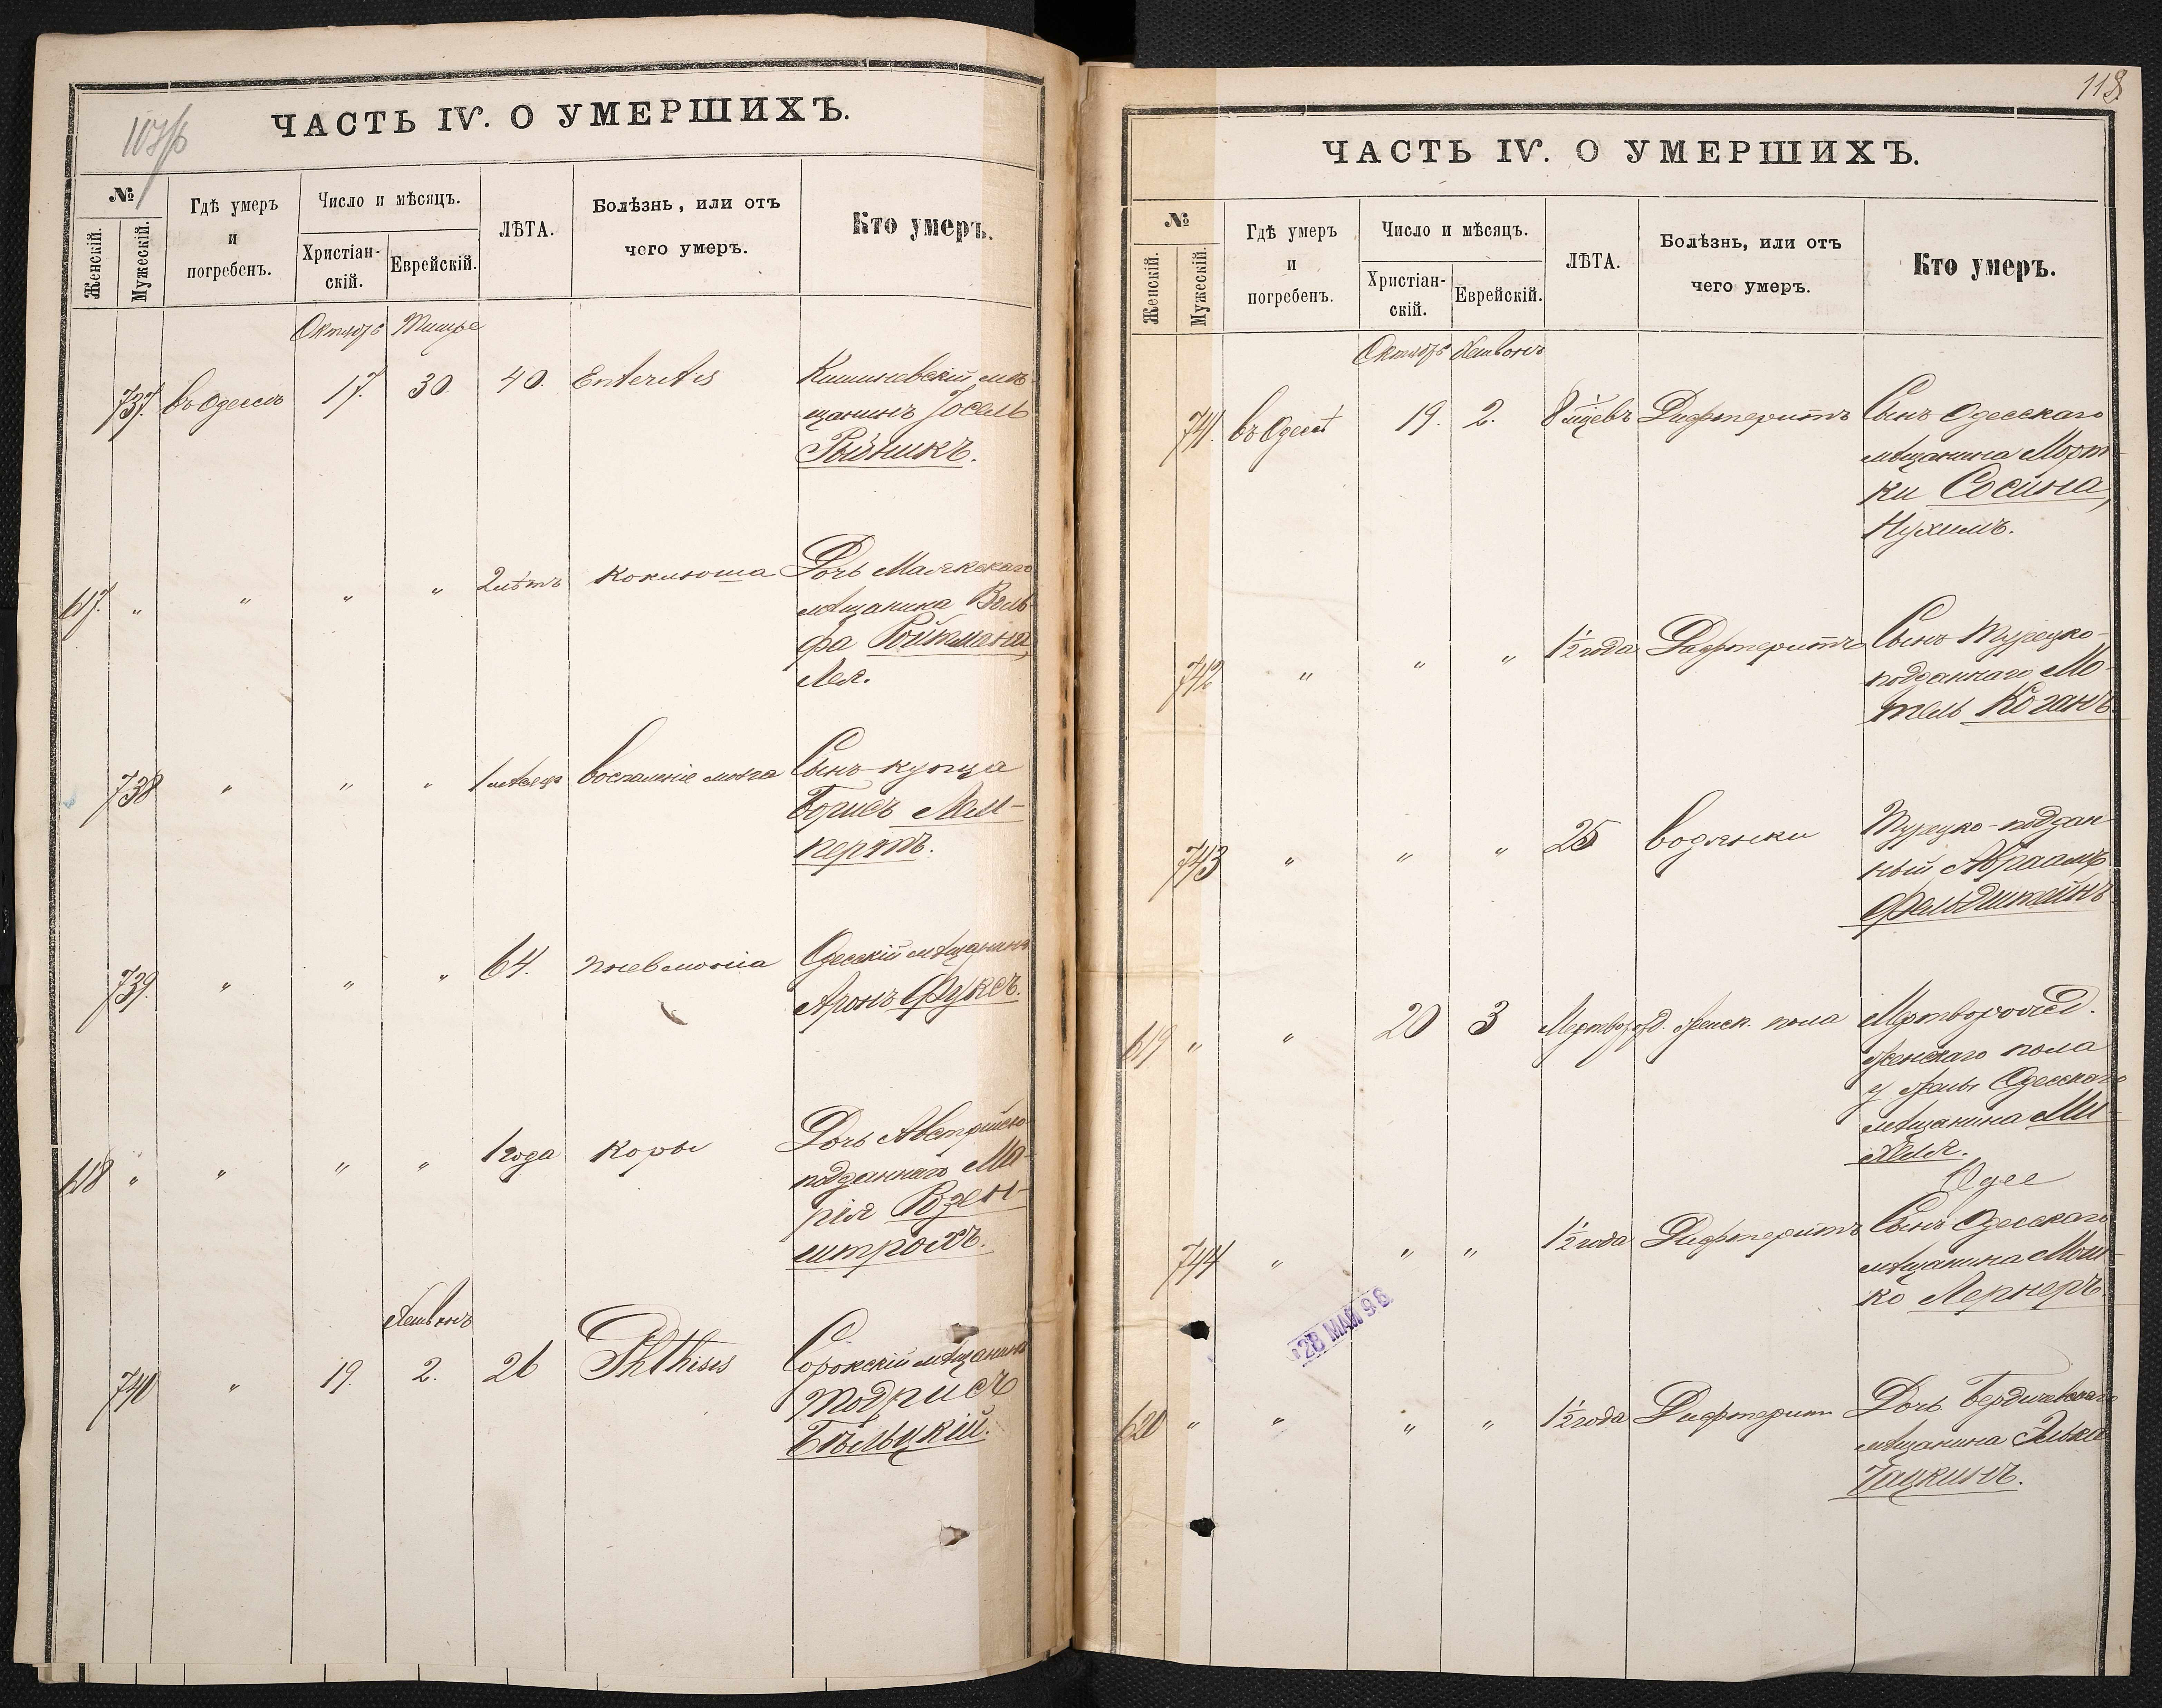 ЧАСТЬ IV. О УМЕРШИХЪ.
№
Женскій.
Мужескій.
Гдѣ умеръ
и
погребенъ.
Число и мѣсяцъ.
Христіан-
скій.
Еврейскій.
ЛѢТА.
Болѣзнь, или отъ
чего умеръ.
Кто умеръ.
Октябрь Тишре
737. въ Одессѣ 17. 30. 40. Enteritis Кишиневскій мѣ-
щанинъ Іосель
Рыбникъ.
617. " " " " 2 лѣтъ Коклюша Дочь Маякскаго
мѣщанина Воль-
фа Ройтмена,
Лея.
738 " " " 1 мѣсяца воспаленіе мозга Сынъ купца
Борисъ Лем-
пертъ.
739. " " " 64. пневмонія Одесскій мѣщанинъ
Аронъ Фуксъ.
618 " " " " 1 года Коры Дочь Австрійско-
подданнаго Ма-
рія Розен-
штрохъ.
Хешвонъ
740 " 19. 2. 26 Phthisis Сорокскій мѣщанинъ
Тодрисъ
Бѣльцкій.
118
ЧАСТЬ IV. О УМЕРШИХЪ.
№
Женскій.
Мужескій.
Гдѣ умеръ
и
погребенъ.
Число и мѣсяцъ.
Христіан-
скій.
Еврейскій.
ЛѢТА.
Болѣзнь, или отъ
чего умеръ.
Кто умеръ.
Октябрь Хешвонъ
741. въ Одессѣ 19. 2. 8 мцевъ Дифтеритъ Сынъ Одесскаго
мѣщанина Морт-
ки Сосина,
Нухимъ.
742 " " " 1½ года Дифтеритъ Сынъ Турецко-
подданнаго Мо-
тель Коганъ
743 " " " 25 водянки Турецко-поддан-
ный Абраамъ
Фельдштейнъ
619 " " 20 3 Мертворожд. женск. пола Мертворожд.
женскаго пола
у жены Одесскаго
мѣщанина Ми-
хеля.
Одес
744 " " " 1½ года Дифтеритъ Сынъ Одесскаго
мѣщанина Мош-
ко Лернеръ.
28 МАЙ 96
620 " " " " 1½ года Дифтерит Дочь Бердичевскаго
мѣщанина Элька
Чацкинъ.